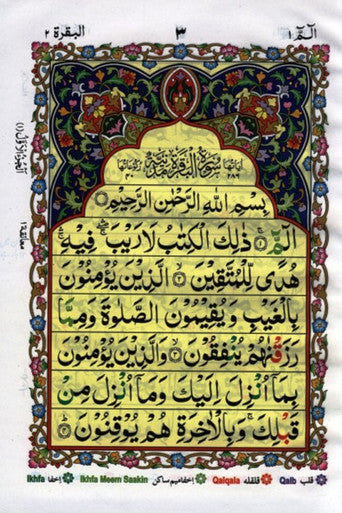 الٓمّٓ ۱ ۳ البقرة ۲
اٰیاتها ۲۸۶ سُوْرَةُ الْبَقَرَةِ مَدَنِيَّةٌ رکوعاتها ۴۰
بِسْمِ اللهِ الرَّحْمٰنِ الرَّحِيْمِ
الٓمّٓ ۚ ذٰلِكَ الْكِتٰبُ لَا رَيْبَ ۛ فِيْهِ ۛ
هُدًى لِّلْمُتَّقِيْنَ ۙ الَّذِيْنَ يُؤْمِنُوْنَ
بِالْغَيْبِ وَ يُقِيْمُوْنَ الصَّلٰوةَ وَ مِمَّا
رَزَقْنٰهُمْ يُنْفِقُوْنَ ۙ وَالَّذِيْنَ يُؤْمِنُوْنَ
بِمَآ اُنْزِلَ اِلَيْكَ وَمَآ اُنْزِلَ مِنْ
قَبْلِكَ وَ بِالْاٰخِرَةِ هُمْ يُوْقِنُوْنَ
معانقة ۱
Ikhfa اخفا Ikhfa Meem Saakin اخفا میم ساکن Qalqala قلقله Qalb قلب